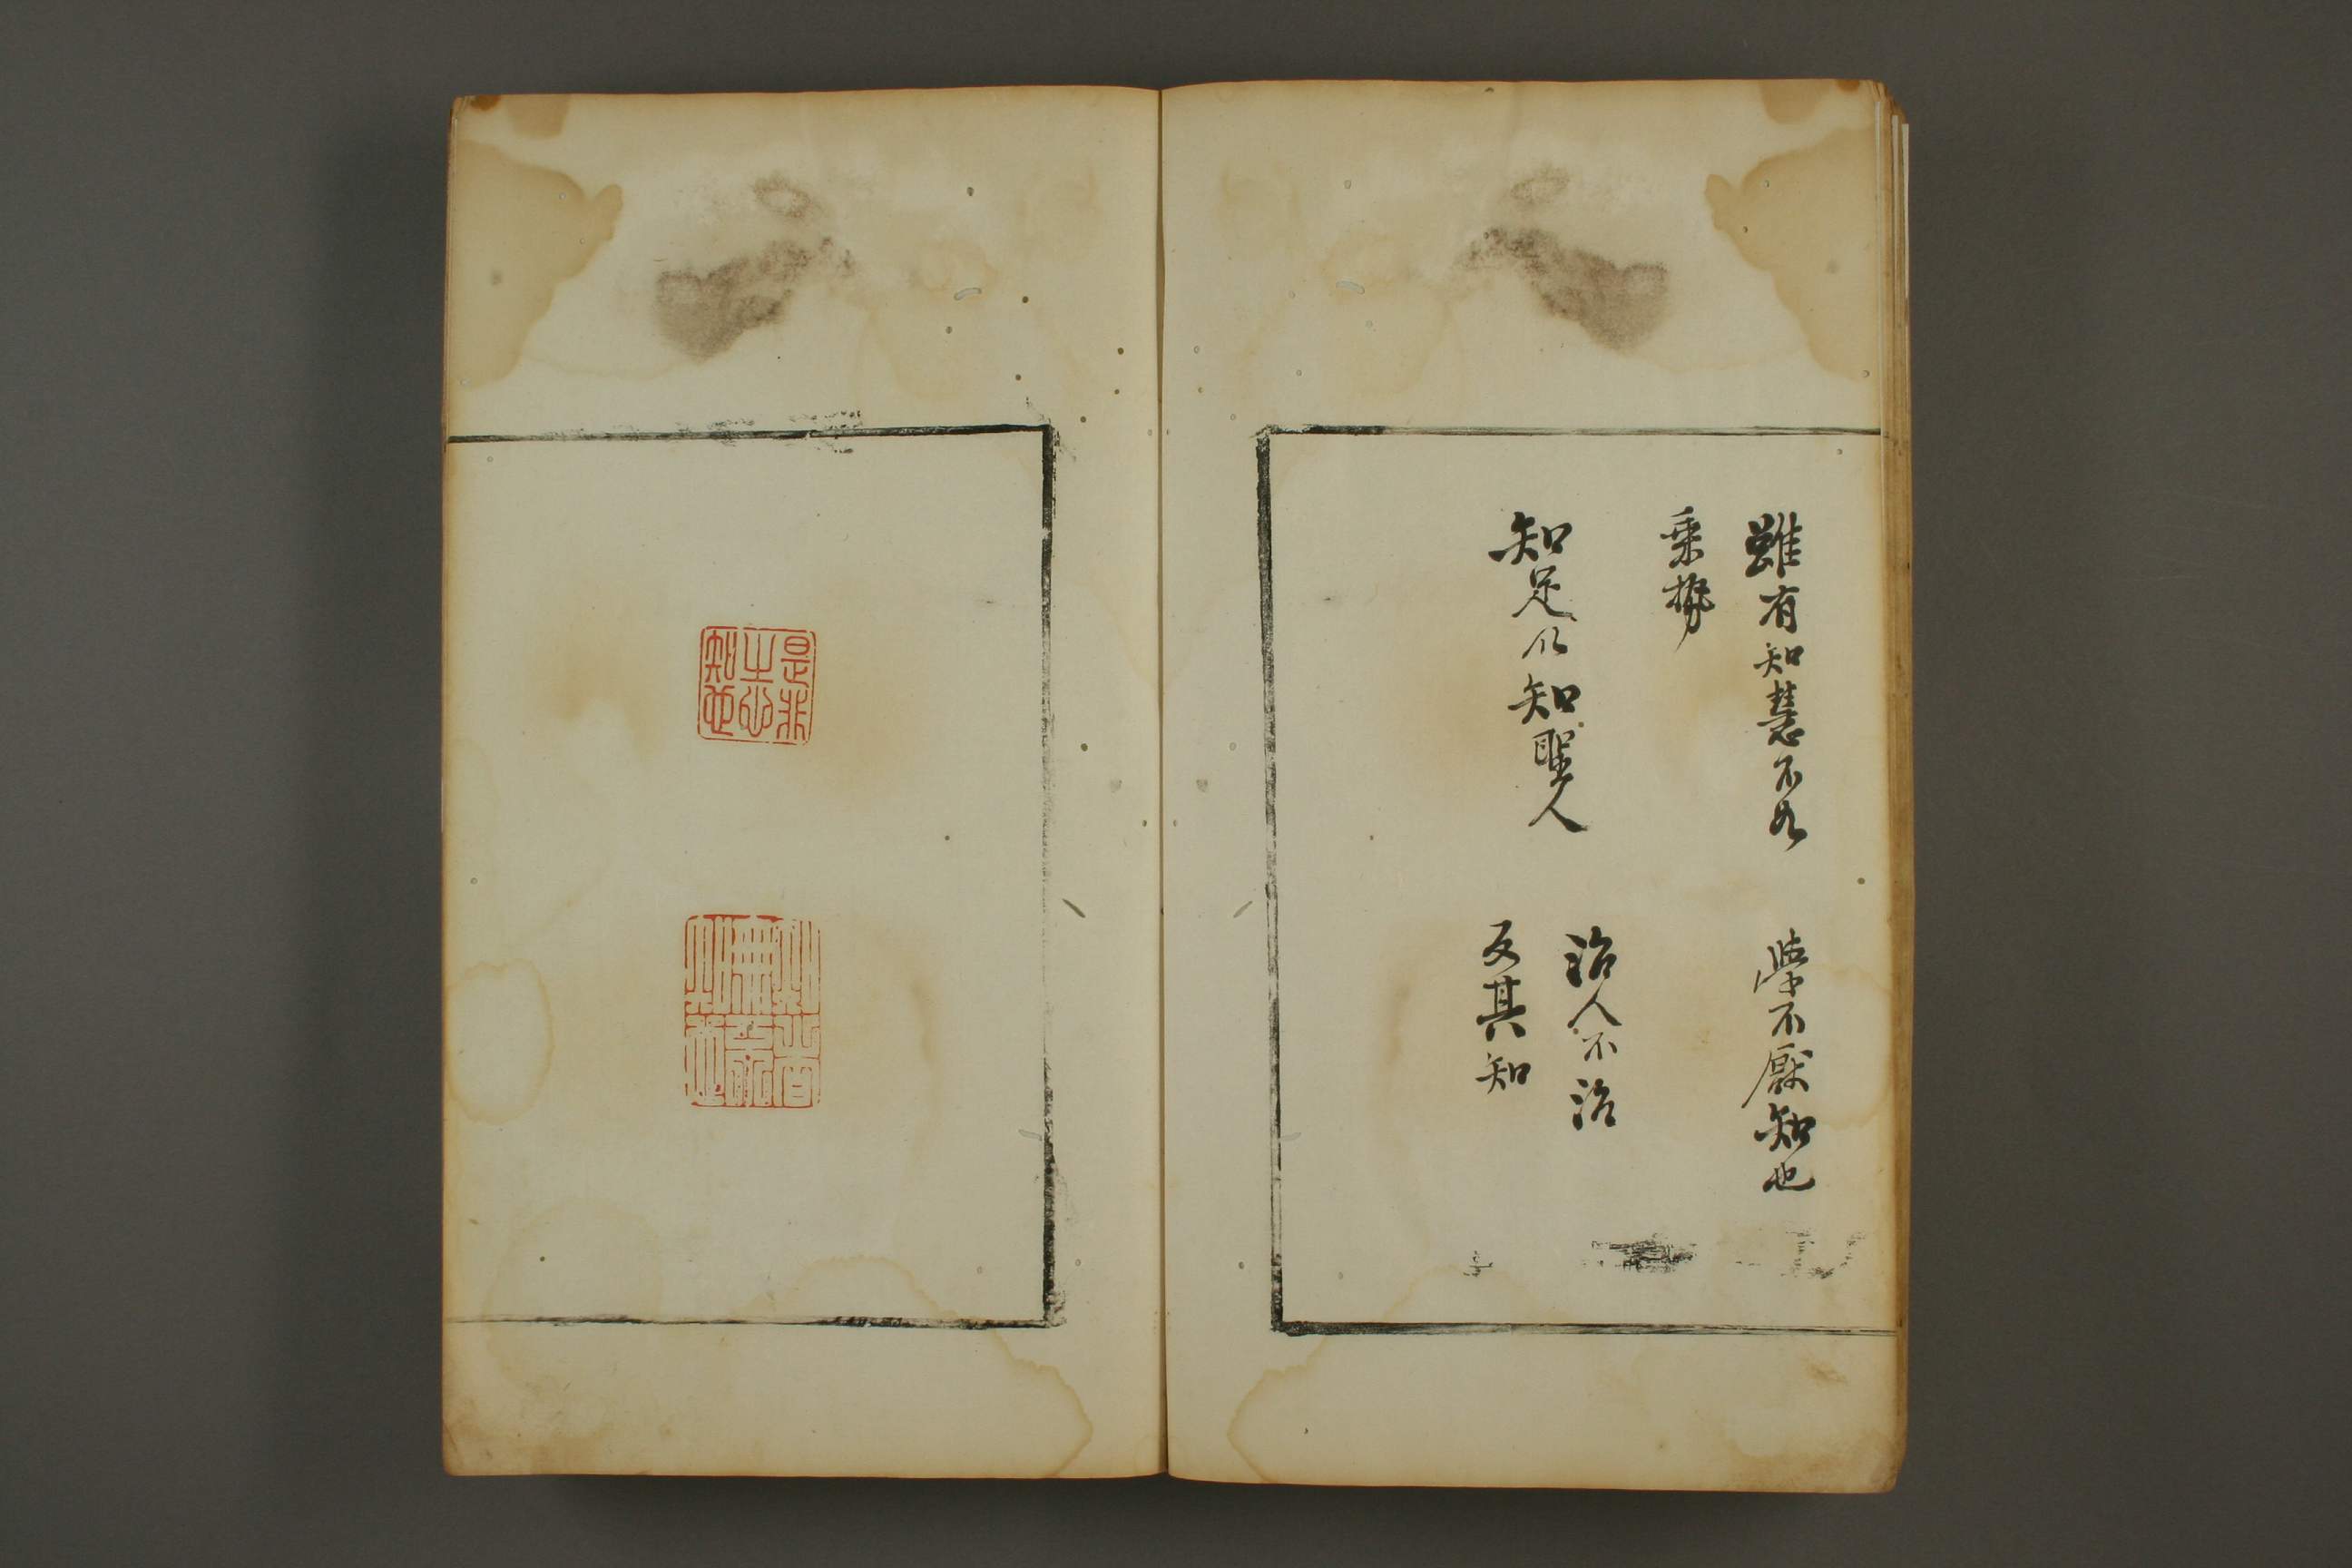 雖有知慧不如
乘勢
學不厭知也
知足以知聖人
治人不治
反其知
是非
之心
知也